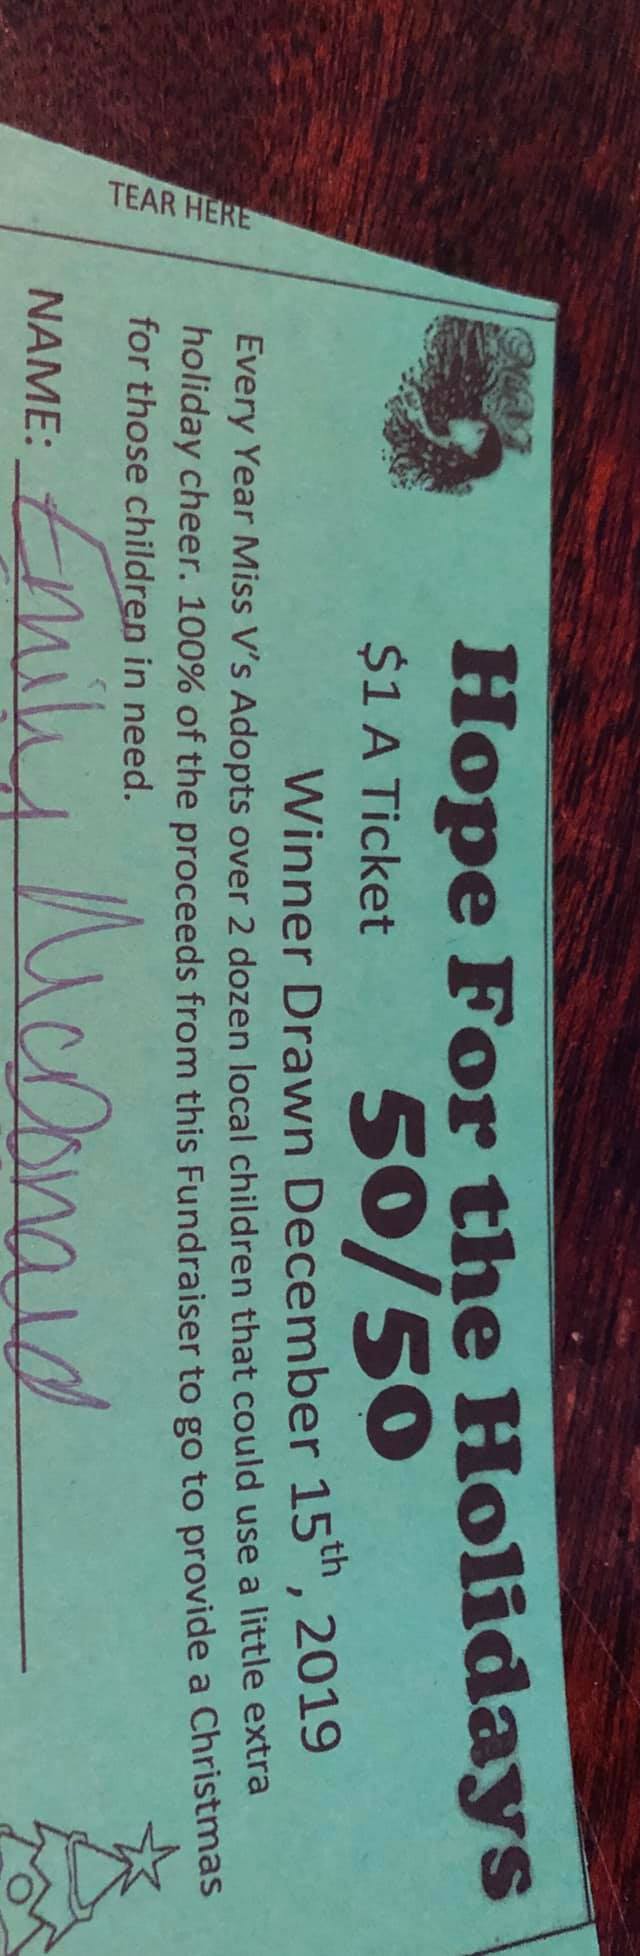 TEAR HERE
Hope For the Holidays
$1 A Ticket
50/50
Winner Drawn December 15th, 2019
Every Year Miss V's Adopts over 2 dozen local children that could use a little extra
holiday cheer. 100% of the proceeds from this Fundraiser to go to provide a Christmas
for those children in need.
NAME: Emily McDonald